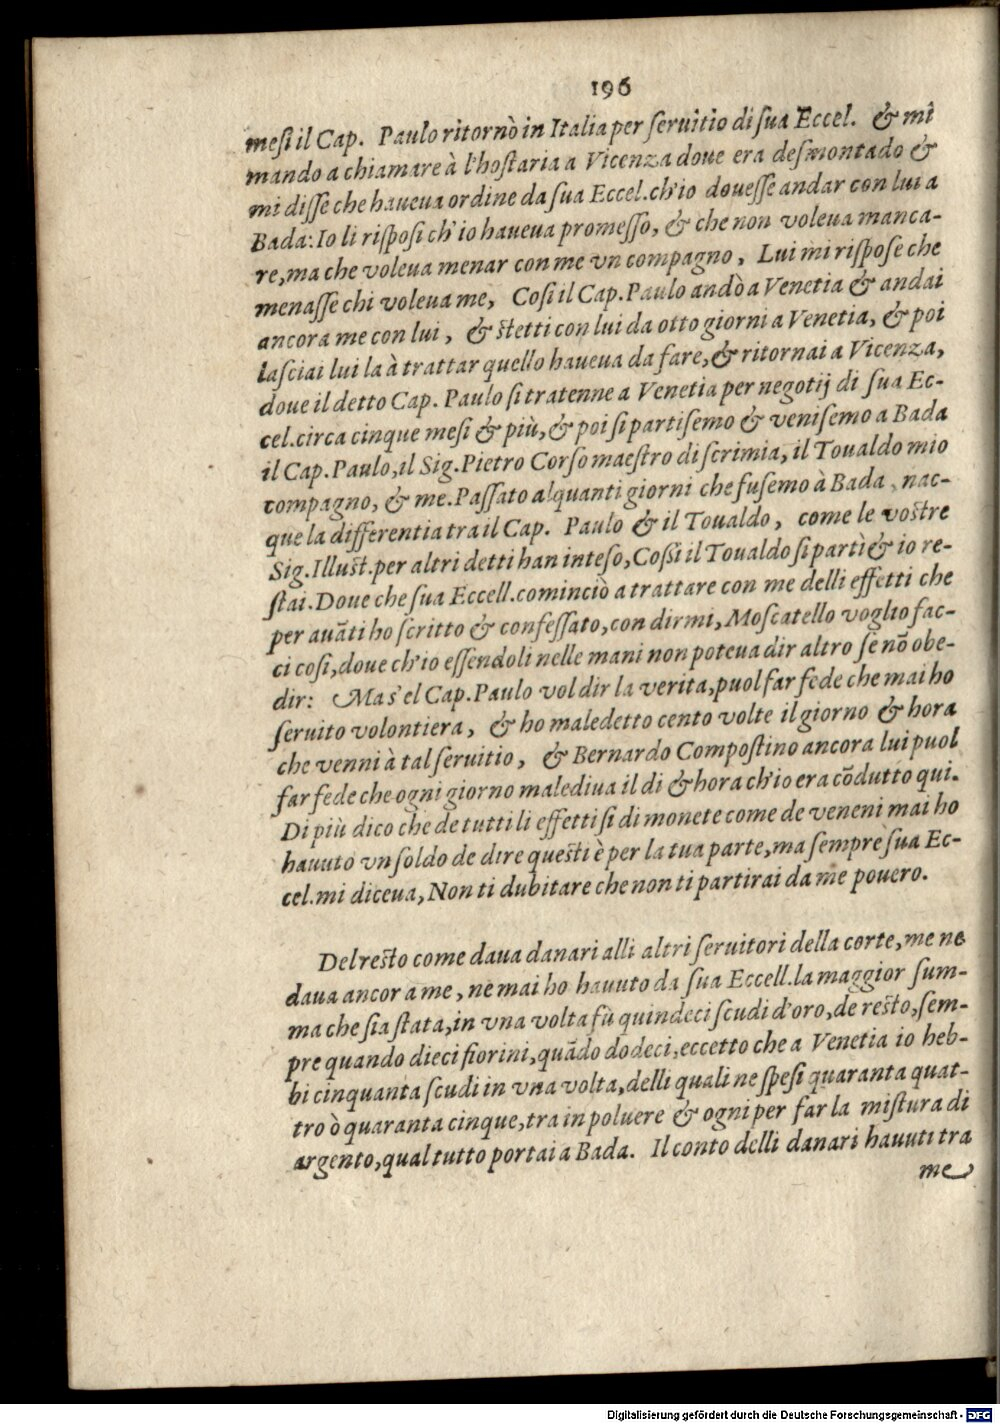 196
mesi il Cap. Paulo ritornò in Italia per seruitio di sua Eccel. & mi
mando a chiamare à l'hostaria a Vicenza doue era desmontado &
mi disse che haueua ordine da sua Eccel. ch'io douesse andar con lui a
Bada: Io li risposi ch'io haueua promesso, & che non voleua manca-
re, ma che voleua menar con me vn compagno, Lui mi rispose che
menasse chi voleua me, Cosi il Cap. Paulo andò a Venetia & andai
ancora me con lui, & stetti con lui da otto giorni a Venetia, & poi
lasciai lui la à trattar quello haueua da fare, & ritornai a Vicenza,
doue il detto Cap. Paulo si tratenne a Venetia per negotij di sua Ec-
cel. circa cinque mesi & più, & poi si partisemo & venisemo a Bada
il Cap. Paulo, il Sig. Pietro Corso maestro di scrimia, il Toualdo mio
compagno, & me. Passato alquanti giorni che fusemo à Bada, nac-
que la differentia tra il Cap. Paulo & il Toualdo, come le vostre
Sig. Illust. per altri detti han inteso, Cossi il Toualdo si partì & io re-
stai. Doue che sua Eccell. cominciò a trattare con me delli effetti che
per auāti ho scritto & confessato, con dirmi, Moscatello voglio fac-
ci cosi, doue ch'io essendoli nelle mani non poteua dir altro se nō obe-
dir: Ma s'el Cap. Paulo vol dir la verita, puol far fede che mai ho
seruito volontiera, & ho maledetto cento volte il giorno & hora
che venni à tal seruitio, & Bernardo Compostino ancora lui puol
far fede che ogni giorno malediua il di & hora ch'io era cōdutto qui.
Di più dico che de tutti li effetti si di monete come de veneni mai ho
hauuto vn soldo de dire questi è per la tua parte, ma sempre sua Ec-
cel. mi diceua, Non ti dubitare che non ti partirai da me pouero.
Del resto come daua danari alli altri seruitori della corte, me ne
daua ancor a me, ne mai ho hauuto da sua Eccell. la maggior sum-
ma che sia stata, in vna volta fù quindeci scudi d'oro, de resto, sem-
pre quando dieci fiorini, quādo dodeci, eccetto che a Venetia io heb-
bi cinquanta scudi in vna volta, delli quali ne spesi quaranta quat-
tro ò quaranta cinque, tra in poluere & ogni per far la mistura di
argento, qual tutto portai a Bada. Il conto delli danari hauuti tra
me
Digitalisierung gefördert durch die Deutsche Forschungsgemeinschaft - DFG